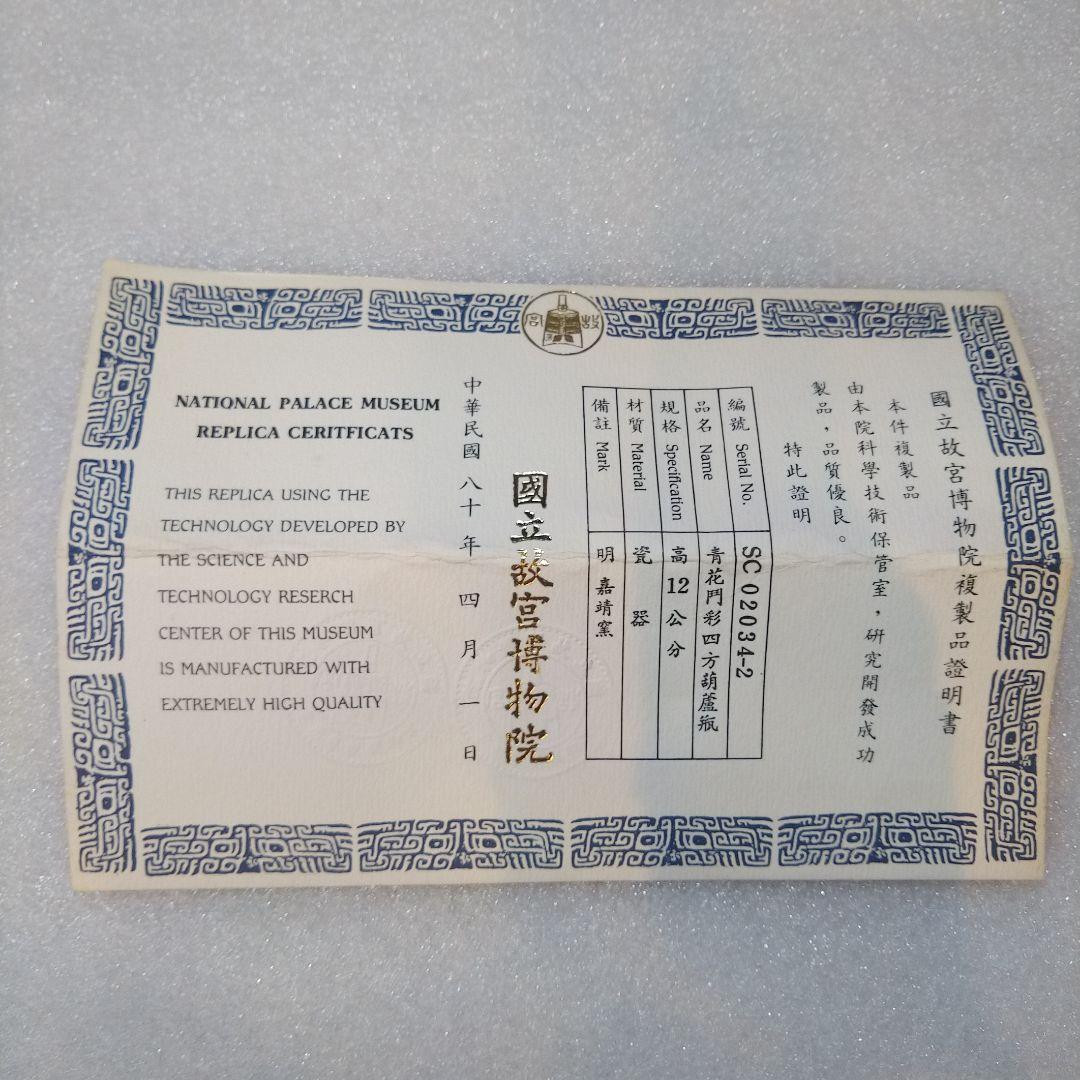 國立故宮博物院複製品證明書
本件複製品
由本院科學技術保管室，研究開發成功
製品，品質優良。
特此證明
編號 Serial No. SC 02034-2
品名 Name 青花鬥彩四方葫蘆瓶
規格 Specification 高12公分
材質 Material 瓷器
備註 Mark 明嘉靖窯
國立故宮博物院
中華民國八十年四月一日
NATIONAL PALACE MUSEUM
REPLICA CERITFICATS
THIS REPLICA USING THE
TECHNOLOGY DEVELOPED BY
THE SCIENCE AND
TECHNOLOGY RESERCH
CENTER OF THIS MUSEUM
IS MANUFACTURED WITH
EXTREMELY HIGH QUALITY